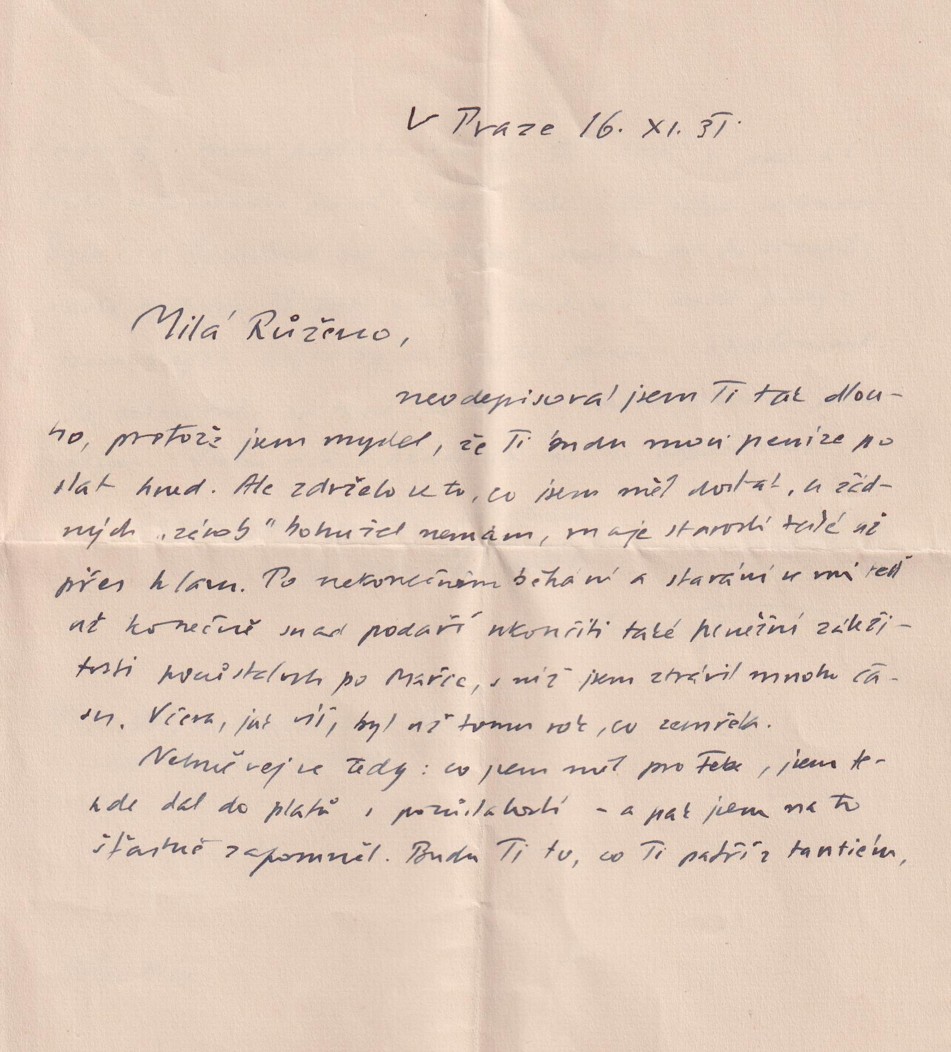 V Praze 16. XI. 31.
Milá Růženo,
neodepisoval jsem Ti tak dlou-
ho, protože jsem myslel, že Ti budu moci peníze po
slat hned. Ale zdrželo se to, co jsem měl dostat, a žád-
ných „zásob" bohužel nemám, maje starostí také až
přes hlavu. Po nekonečném běhání a starání se mi teď
už konečně snad podaří skončiti také peněžní záleži-
tosti pozůstalosti po Mařce, s níž jsem ztrávil mnoho ča-
su. Včera, jak víš, byl už tomu rok, co zemřela.
Nehněvej se tedy: co jsem měl pro Tebe, jsem te-
hde dal do platů s pozůstalostí – a pak jsem na to
šťastně zapomněl. Budu Ti to, co Ti patří z tantiém,